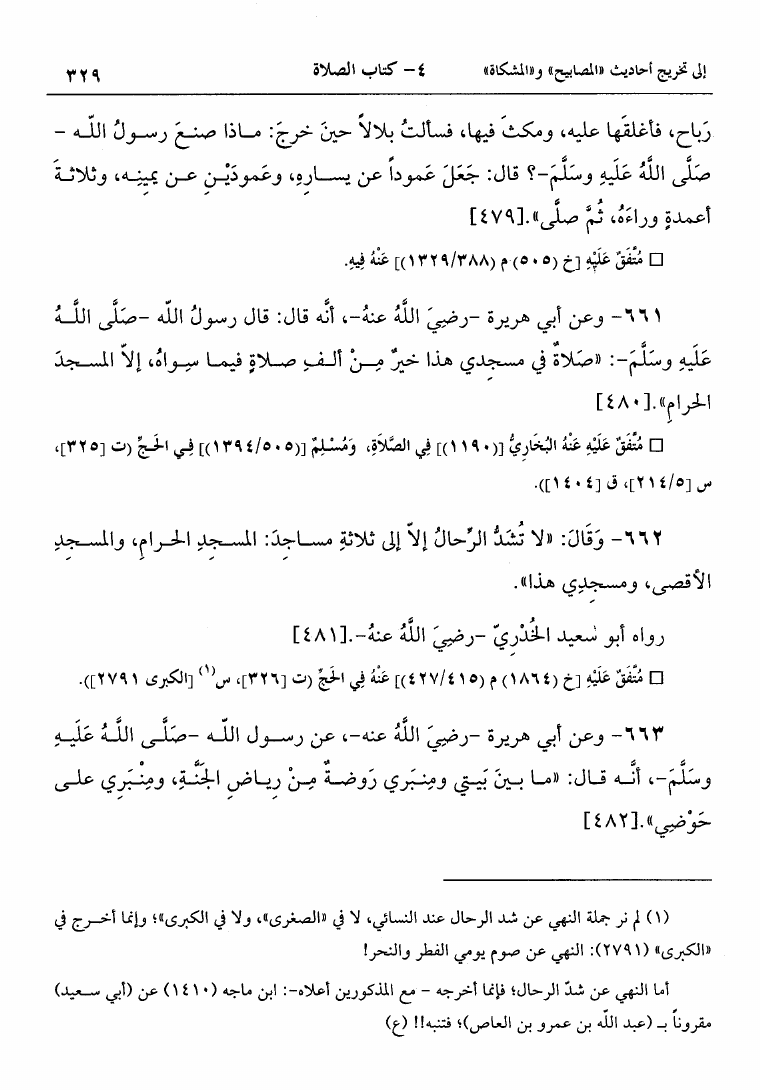 إلى تخريج أحاديث «المصابيح» و«المشكاة» ٤- كتاب الصلاة ٣٢٩
رَباح، فأغلقَها عليه، ومكثَ فيها، فسألتُ بلالاً حينَ خرجَ: مـاذا صنـعَ رسـولُ اللّـه -
صَلَّى اللَّهُ عَلَيهِ وسَلَّمَ-؟ قال: جَعَلَ عَموداً عن يســارِهِ، وعَموديْـنِ عــن يمينِـه، وثلاثـةَ
أعمدةٍ وراءَهُ، ثُمَّ صلَّى».[٤٧٩]
□ مُتَّفَقٌ عَلَيْهِ [خ (٥٠٥) م (١٣٢٩/٣٨٨)] عَنْهُ فِيهِ.
٦٦١- وعن أبي هريرة -رضيَ اللَّهُ عنهُ-، أنَّه قال: قال رسولُ اللّه -صَلَّى اللَّـهُ
عَلَيهِ وسَلَّمَ-: «صَلاةٌ في مسجدِي هذا خيرٌ مِـنْ ألـفِ صـلاةٍ فيمـا سِـواهُ، إلاّ المسـجدَ
الحرامِ».[٤٨٠]
□ مُتَّفَقٌ عَلَيْهِ عَنْهُ البُخَارِيُّ [(١١٩٠)] فِي الصَّلاَةِ، وَمُسْلِمٌ [(١٣٩٤/٥٠٥)] فِـي الحَـجِّ (ت [٣٢٥]،
س [٢١٤/٥]، ق [١٤٠٤]).
٦٦٢- وَقَالَ: «لا تُشَدُّ الرِّحالُ إلاّ إلى ثلاثةِ مسـاجدَ: المسـجدِ الحـرامِ، والمسـجدِ
الأقصى، ومسجدِي هذا».
رواه أبو سَعيد الخُدْرِيّ -رضيَ اللَّهُ عنهُ-.[٤٨١]
□ مُتَّفَقٌ عَلَيْهِ [خ (١٨٦٤) م (٤٢٧/٤١٥)] عَنْهُ فِي الحَجِّ (ت [٣٢٦]، س(١) [الكبرى ٢٧٩١]).
٦٦٣- وعن أبي هريرة -رضيَ اللَّهُ عنه-، عن رسـول اللّـه -صَلَّـى اللَّـهُ عَلَيـهِ
وسَلَّمَ-، أنَّـه قـال: «مـا بـينَ بَيـتي ومِنـبَري رَوضـةٌ مِـنْ ريـاضِ الجَنَّـةِ، ومِنْـبَرِي علـى
حَوْضِي».[٤٨٢]
(١) لم نر جملة النهي عن شد الرحال عند النسائي، لا في «الصغرى»، ولا في الكبرى»؛ وإنما أخــرج في
«الكبرى» (٢٧٩١): النهي عن صوم يومي الفطر والنحر!
أما النهي عن شدّ الرحال؛ فإنما أخرجه - مع المذكورين أعلاه-: ابن ماجه (١٤١٠) عن (أبي سـعيد)
مقروناً بـ (عبد اللّه بن عمرو بن العاص)؛ فتنبه!! (ع)